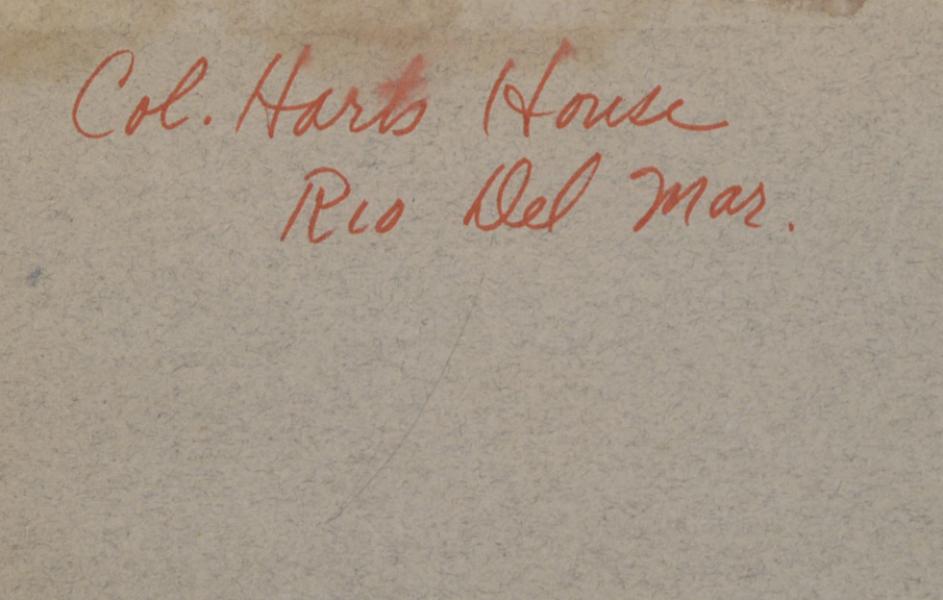 Col. Harts House
Rio Del Mar.